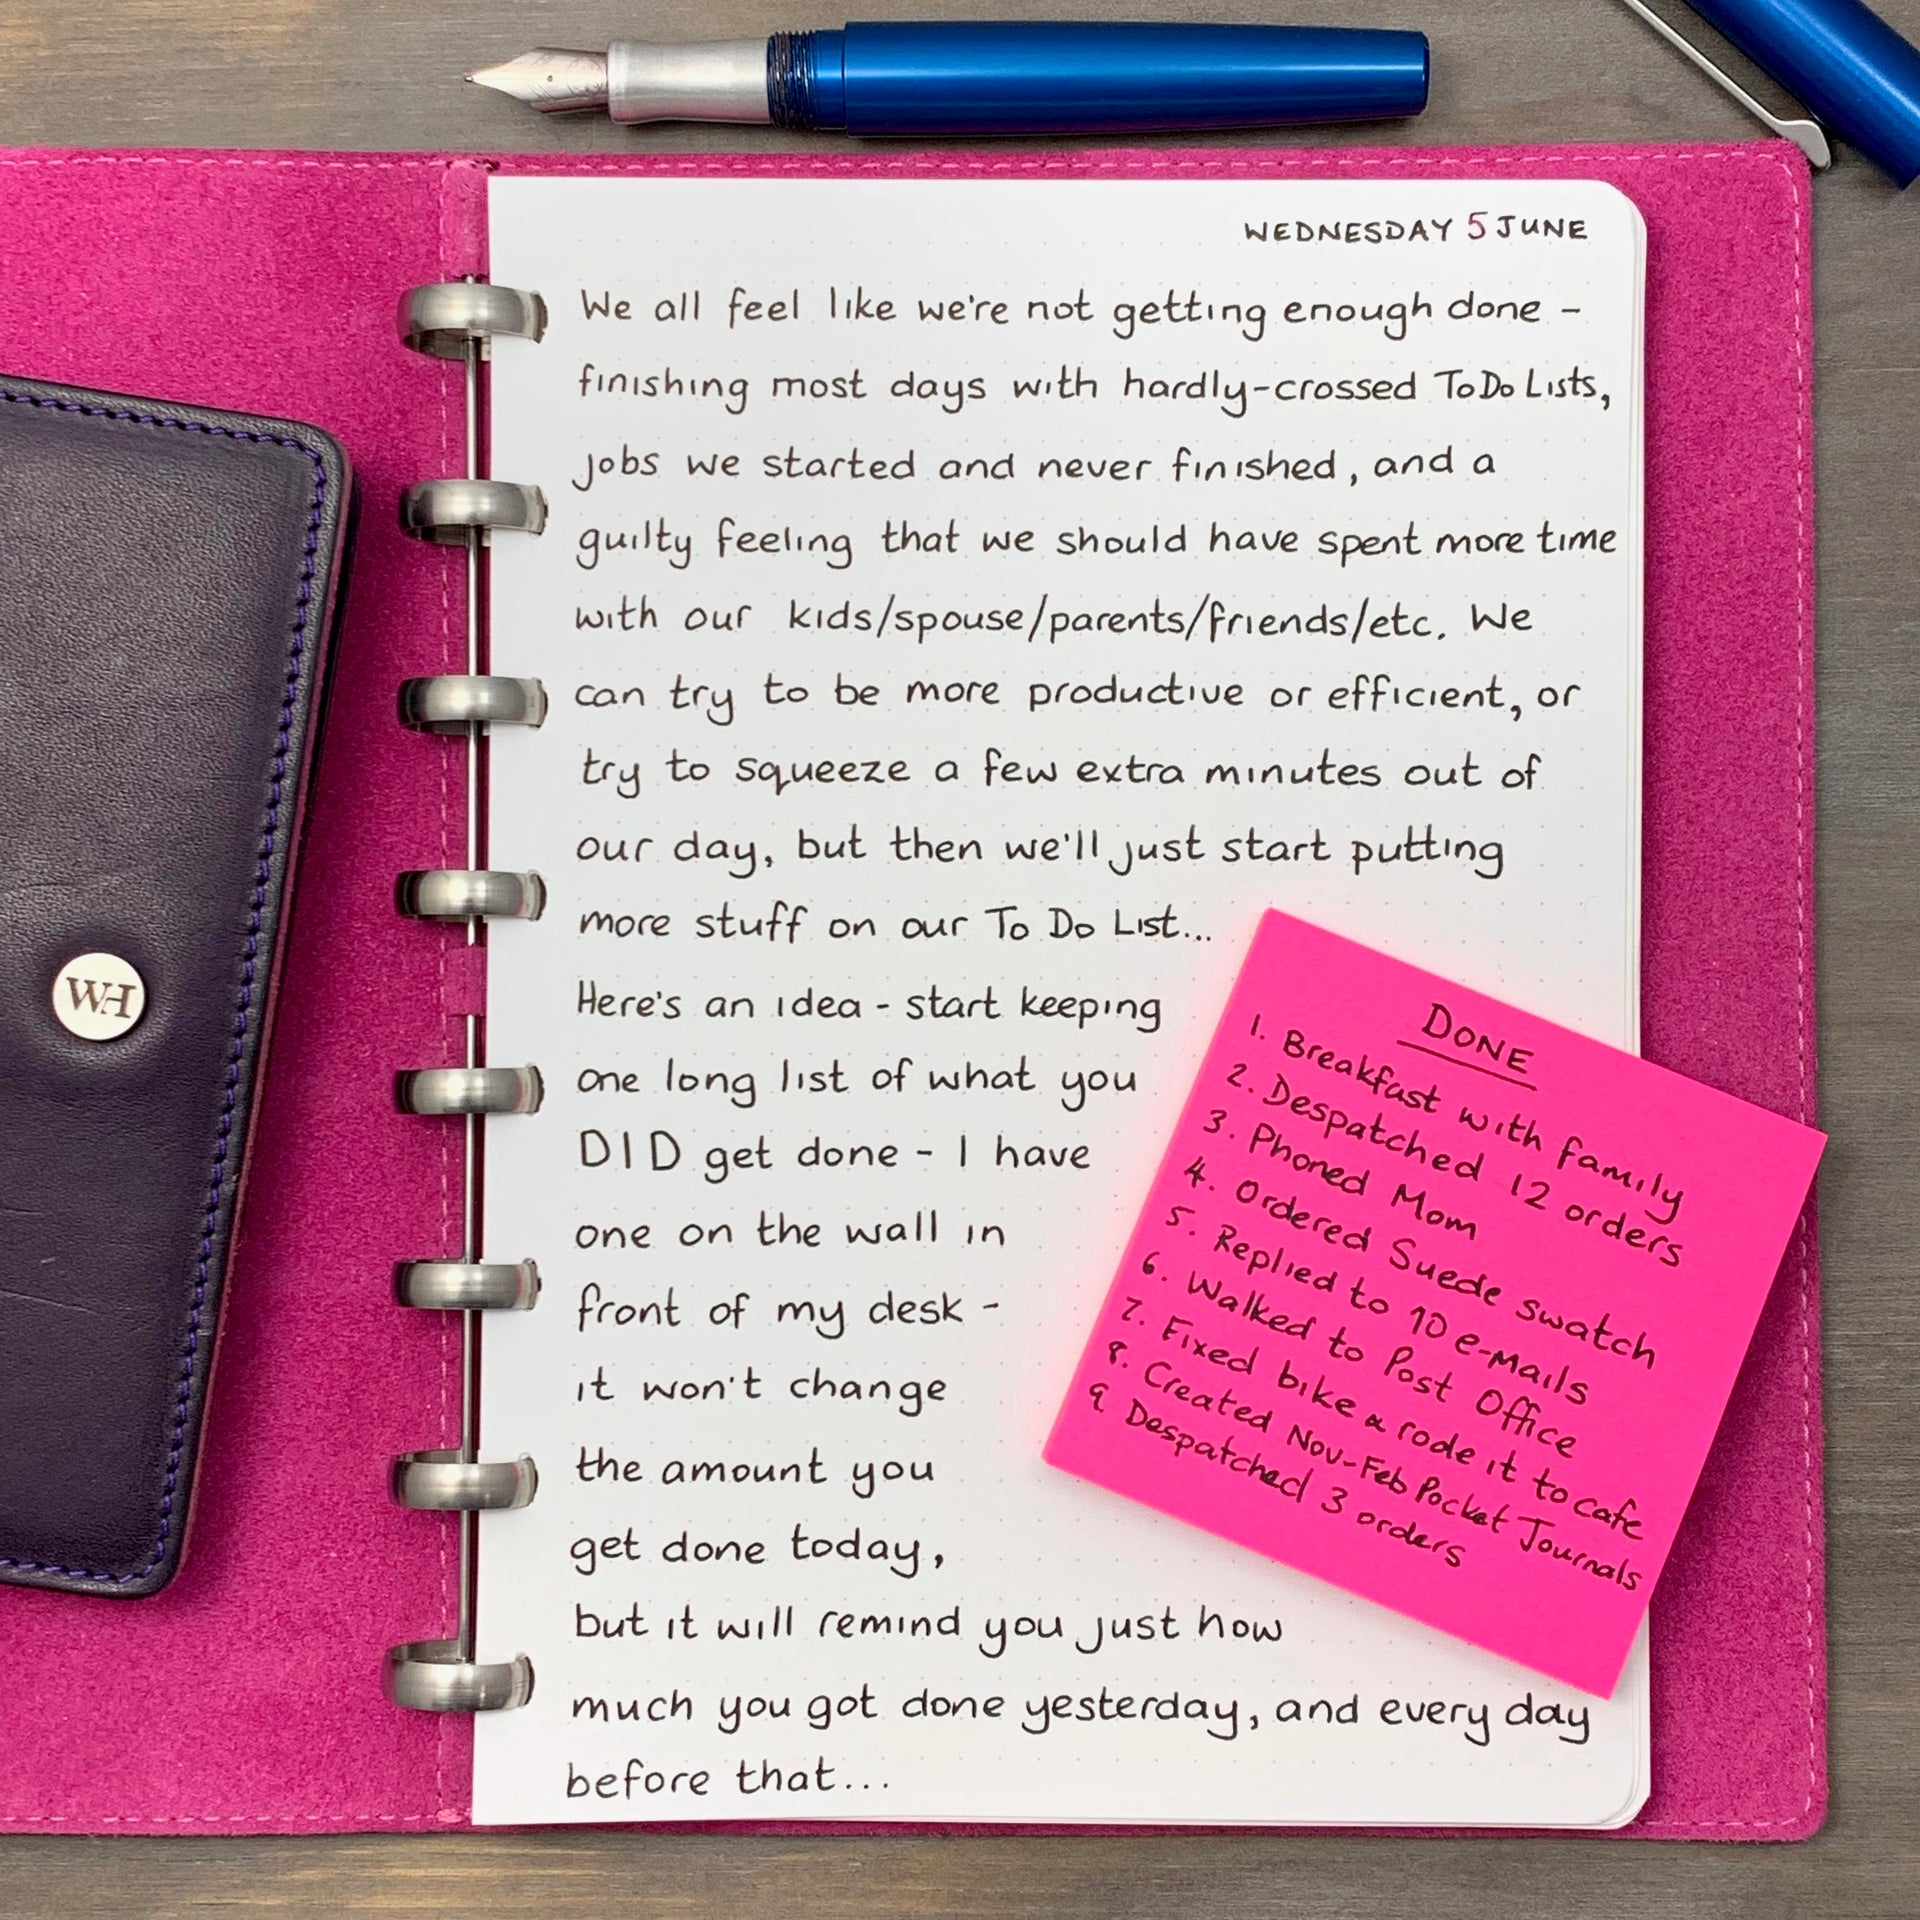 WEDNESDAY 5 JUNE
We all feel like we're not getting enough done -
finishing most days with hardly-crossed ToDo Lists,
jobs we started and never finished, and a
guilty feeling that we should have spent more time
with our kids/spouse/parents/friends/etc. We
can try to be more productive or efficient, or
try to squeeze a few extra minutes out of
our day, but then we'll just start putting
more stuff on our To Do List...
Here's an idea - start keeping
one long list of what you
DID get done - I have
one on the wall in
front of my desk -
it won't change
the amount you
get done today,
but it will remind you just how
much you got done yesterday, and every day
before that...
DONE
1. Breakfast with family
2. Despatched 12 orders
3. Phoned Mom
4. Ordered Suede swatch
5. Replied to 10 e-mails
6. Walked to Post Office
7. Fixed bike & rode it to cafe
8. Created Nov-Feb Pocket Journals
9. Despatched 3 orders
WH